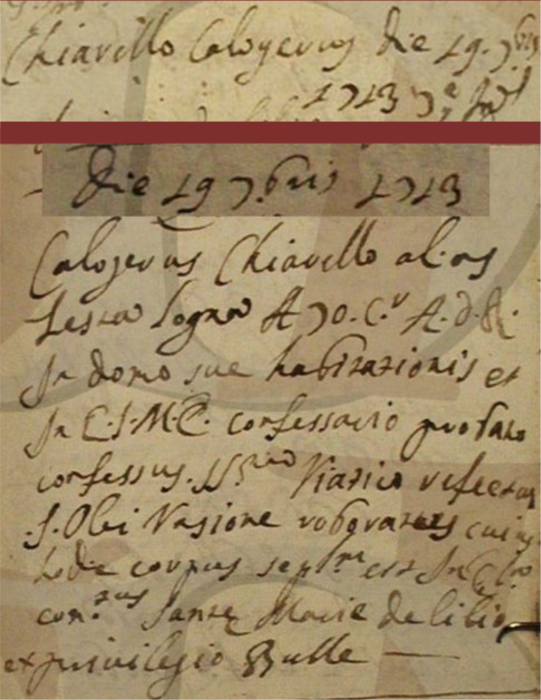 Chiarello Calogerus die 19. 7bris
1713
Die 19 7.bris 1713
Calogerus Chiarello alias
Testa logna A 70. C.r A. D. R.
In domo sue habitationis et
In C. S. M. E. confessario probato
confessus. SS.mo Viatico refectus
S. Olei Unsione roboratus cuius
hodie corpus sep.m est In Ecc.
con.tus Sante Marie de lilio
ex privilegio Bulle